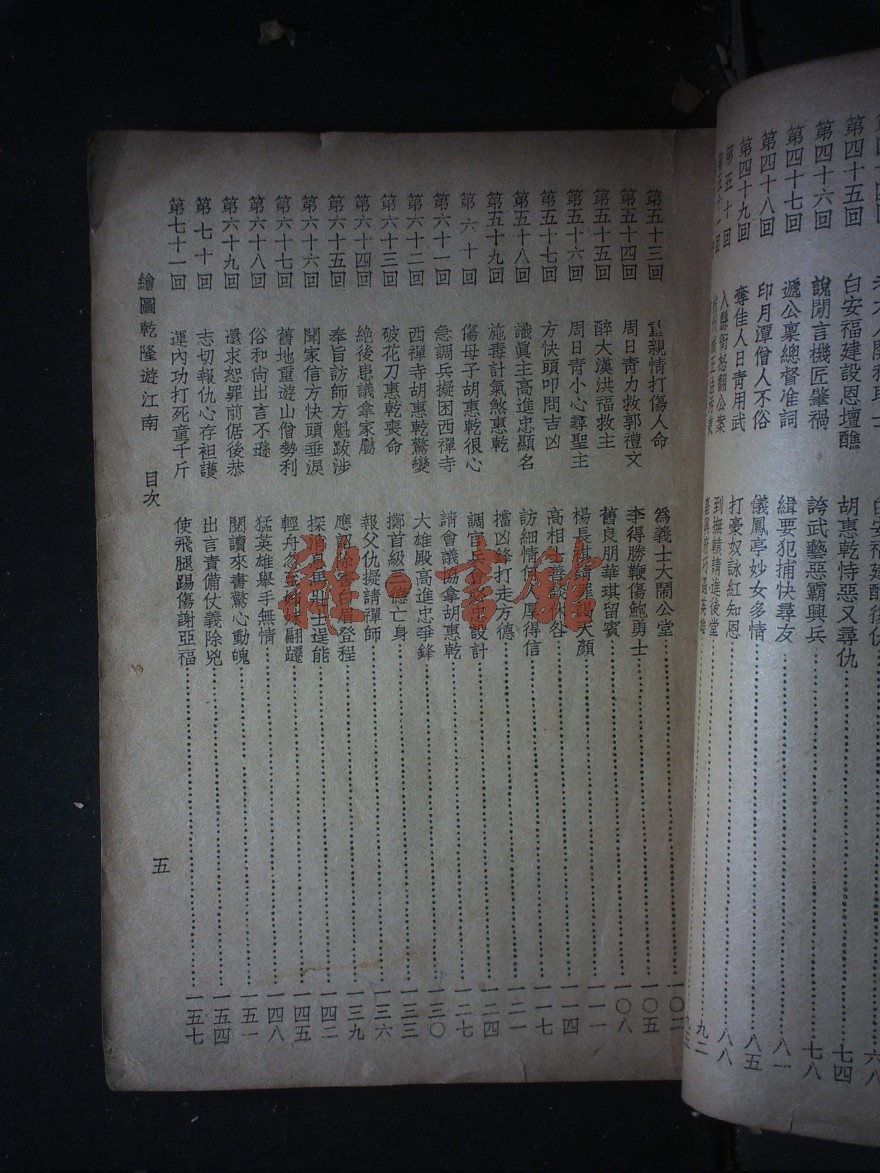 第四十五回 白安福建設恩壇醮 胡惠乾恃惡又尋仇 七四
第四十六回 說閒言機匠肇禍 誇武藝惡霸興兵 七八
第四十七回 遞公稟總督准詞 緝要犯捕快尋友 八一
第四十八回 印月潭僧人不俗 儀鳳亭妙女多情 八五
第四十九回 奪佳人日青用武 打豪奴詠紅知恩 八八
第五十回 入縣衙怒翻公案 到撫轅請進後堂 九二
第五十三回 親情打傷人命 爲義士大鬧公堂 一〇二
第五十四回 周日青力救郭禮文 李得勝鞭傷鮑勇士 一〇五
第五十五回 醉大漢洪福救主 舊良朋華琪留賓 一〇八
第五十六回 周日青小心尋聖主 楊長 天顏 一一一
第五十七回 方快頭叩問吉凶 高相士 一一四
第五十八回 識眞主高進忠顯名 訪細情 厚得信 一一七
第五十九回 施毒計氣煞惠乾 擋凶鋒打走方德 一二一
第六十回 傷母子胡惠乾很心 調官兵 設計 一二四
第六十一回 急調兵擬困西禪寺 請會議協拿胡惠乾 一二七
第六十二回 西禪寺胡惠乾驚變 大雄殿高進忠爭鋒 一三〇
第六十三回 破花刀惠乾喪命 擲首級三德亡身 一三三
第六十四回 絶後患議拿家屬 報父仇擬請禪師 一三六
第六十五回 奉旨訪師方魁跋涉 應詔 登程 一三九
第六十六回 聞家信方快頭垂淚 探消息 壯士逞能 一四二
第六十七回 舊地重遊山僧勢利 輕舟忽 翩躚 一四五
第六十八回 俗和尚出言不遜 猛英雄舉手無情 一四八
第六十九回 還求恕罪前倨後恭 閱讀來書驚心動魄 一五一
第七十回 志切報仇心存袒護 出言責備仗義除兇 一五四
第七十一回 運內功打死童千斤 使飛腿踢傷謝亞福 一五七
繪圖乾隆遊江南 目次 五
雜·書館